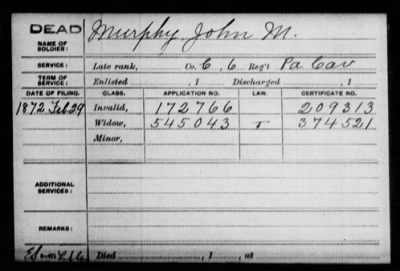 DEAD
NAME OF SOLDIER: Murphy, John M.
SERVICE: Late rank, Co. C, 6 Reg't Pa Cav
TERM OF SERVICE: Enlisted , 1 Discharged , 1
DATE OF FILING. CLASS. APPLICATION NO. LAW. CERTIFICATE NO.
1872 Feb 29 Invalid, 172766 209313
Widow, 545043 374521
Minor,
ADDITIONAL SERVICES:
REMARKS:
Died , 1 , at